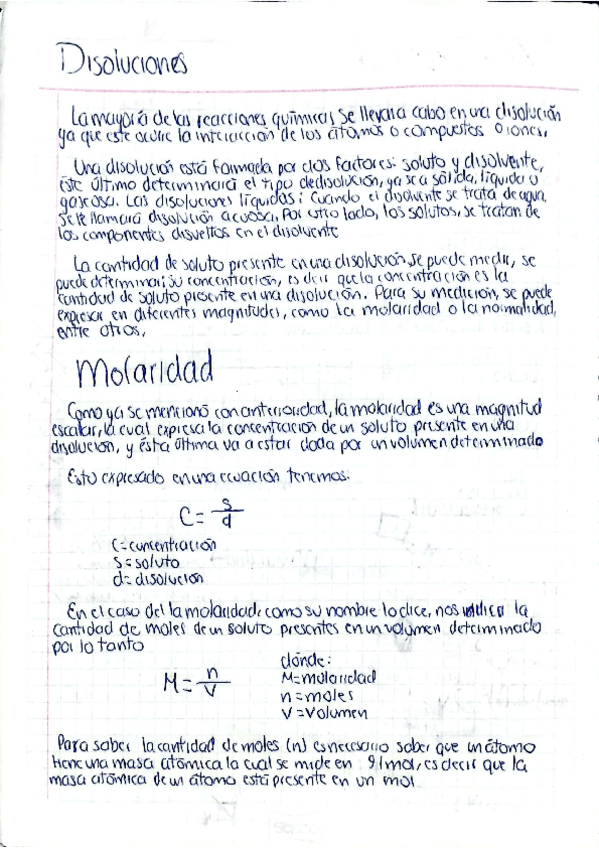 Disoluciones
La mayoría de las reacciones químicas se llevan a cabo en una disolución
ya que este ocurre la interacción de los átomos o compuestos o iones.
Una disolución está formada por dos factores: soluto y disolvente,
éste último determinará el tipo de disolución, ya sea sólida, líquida o
gaseosa. Las disoluciones líquidas: Cuando el disolvente se trata de agua,
se le llamará disolución acuosa. Por otro lado, los solutos, se tratan de
los componentes disueltos en el disolvente
La cantidad de soluto presente en una disolución, se puede medir, se
puede determinar su concentración, es decir que la concentración es la
cantidad de soluto presente en una disolución. Para su medición, se puede
expresar en diferentes magnitudes, como la molaridad o la normalidad,
entre otros.
Molaridad
Como ya se mencionó con anterioridad, la molaridad es una magnitud
escalar, la cual expresa la concentración de un soluto presente en una
disolución, y ésta última va a estar dada por un volumen determinado
Esto expresado en una ecuación tenemos:
C = s/d
C = concentración
S = soluto
d = disolución
En el caso del la molaridad: como su nombre lo dice, nos indica la
cantidad de moles de un soluto presentes en un volumen determinado
por lo tanto
M = n/V
dónde:
M = molaridad
n = moles
V = Volumen
Para saber la cantidad de moles (n) es necesario saber que un átomo
tiene una masa atómica la cual se mide en: g/mol, es decir que la
masa atómica de un átomo está presente en un mol